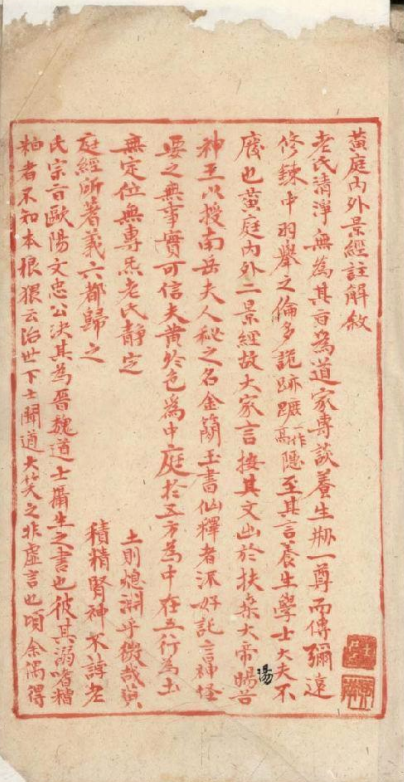 黃庭內外景經註解敘
老氏清淨無為其言為道家專談養生刱一尊而傳彌遠
修鍊中羽舉之倫多詭跡一作高隱至其言養生學士大夫不
廢也黃庭內外二景經故大家言按其文出於扶桑大帝暘谷
湯
神王以授南岳夫人秘之名金簡玉書仙釋者流好託言神怪
要之無事實可信夫黃於色為中庭於五方為中在五行為土
無定位無專炁老氏靜定 土則淵乎微哉與
庭經所著義六都歸之 積精腎神不諄老
氏宗旨歐陽文忠公決其為晉魏道士攝生之書也彼其溺嗜糟
粕者不知本根猥云治世下士聞道大笑之非虛言也頃余偶得